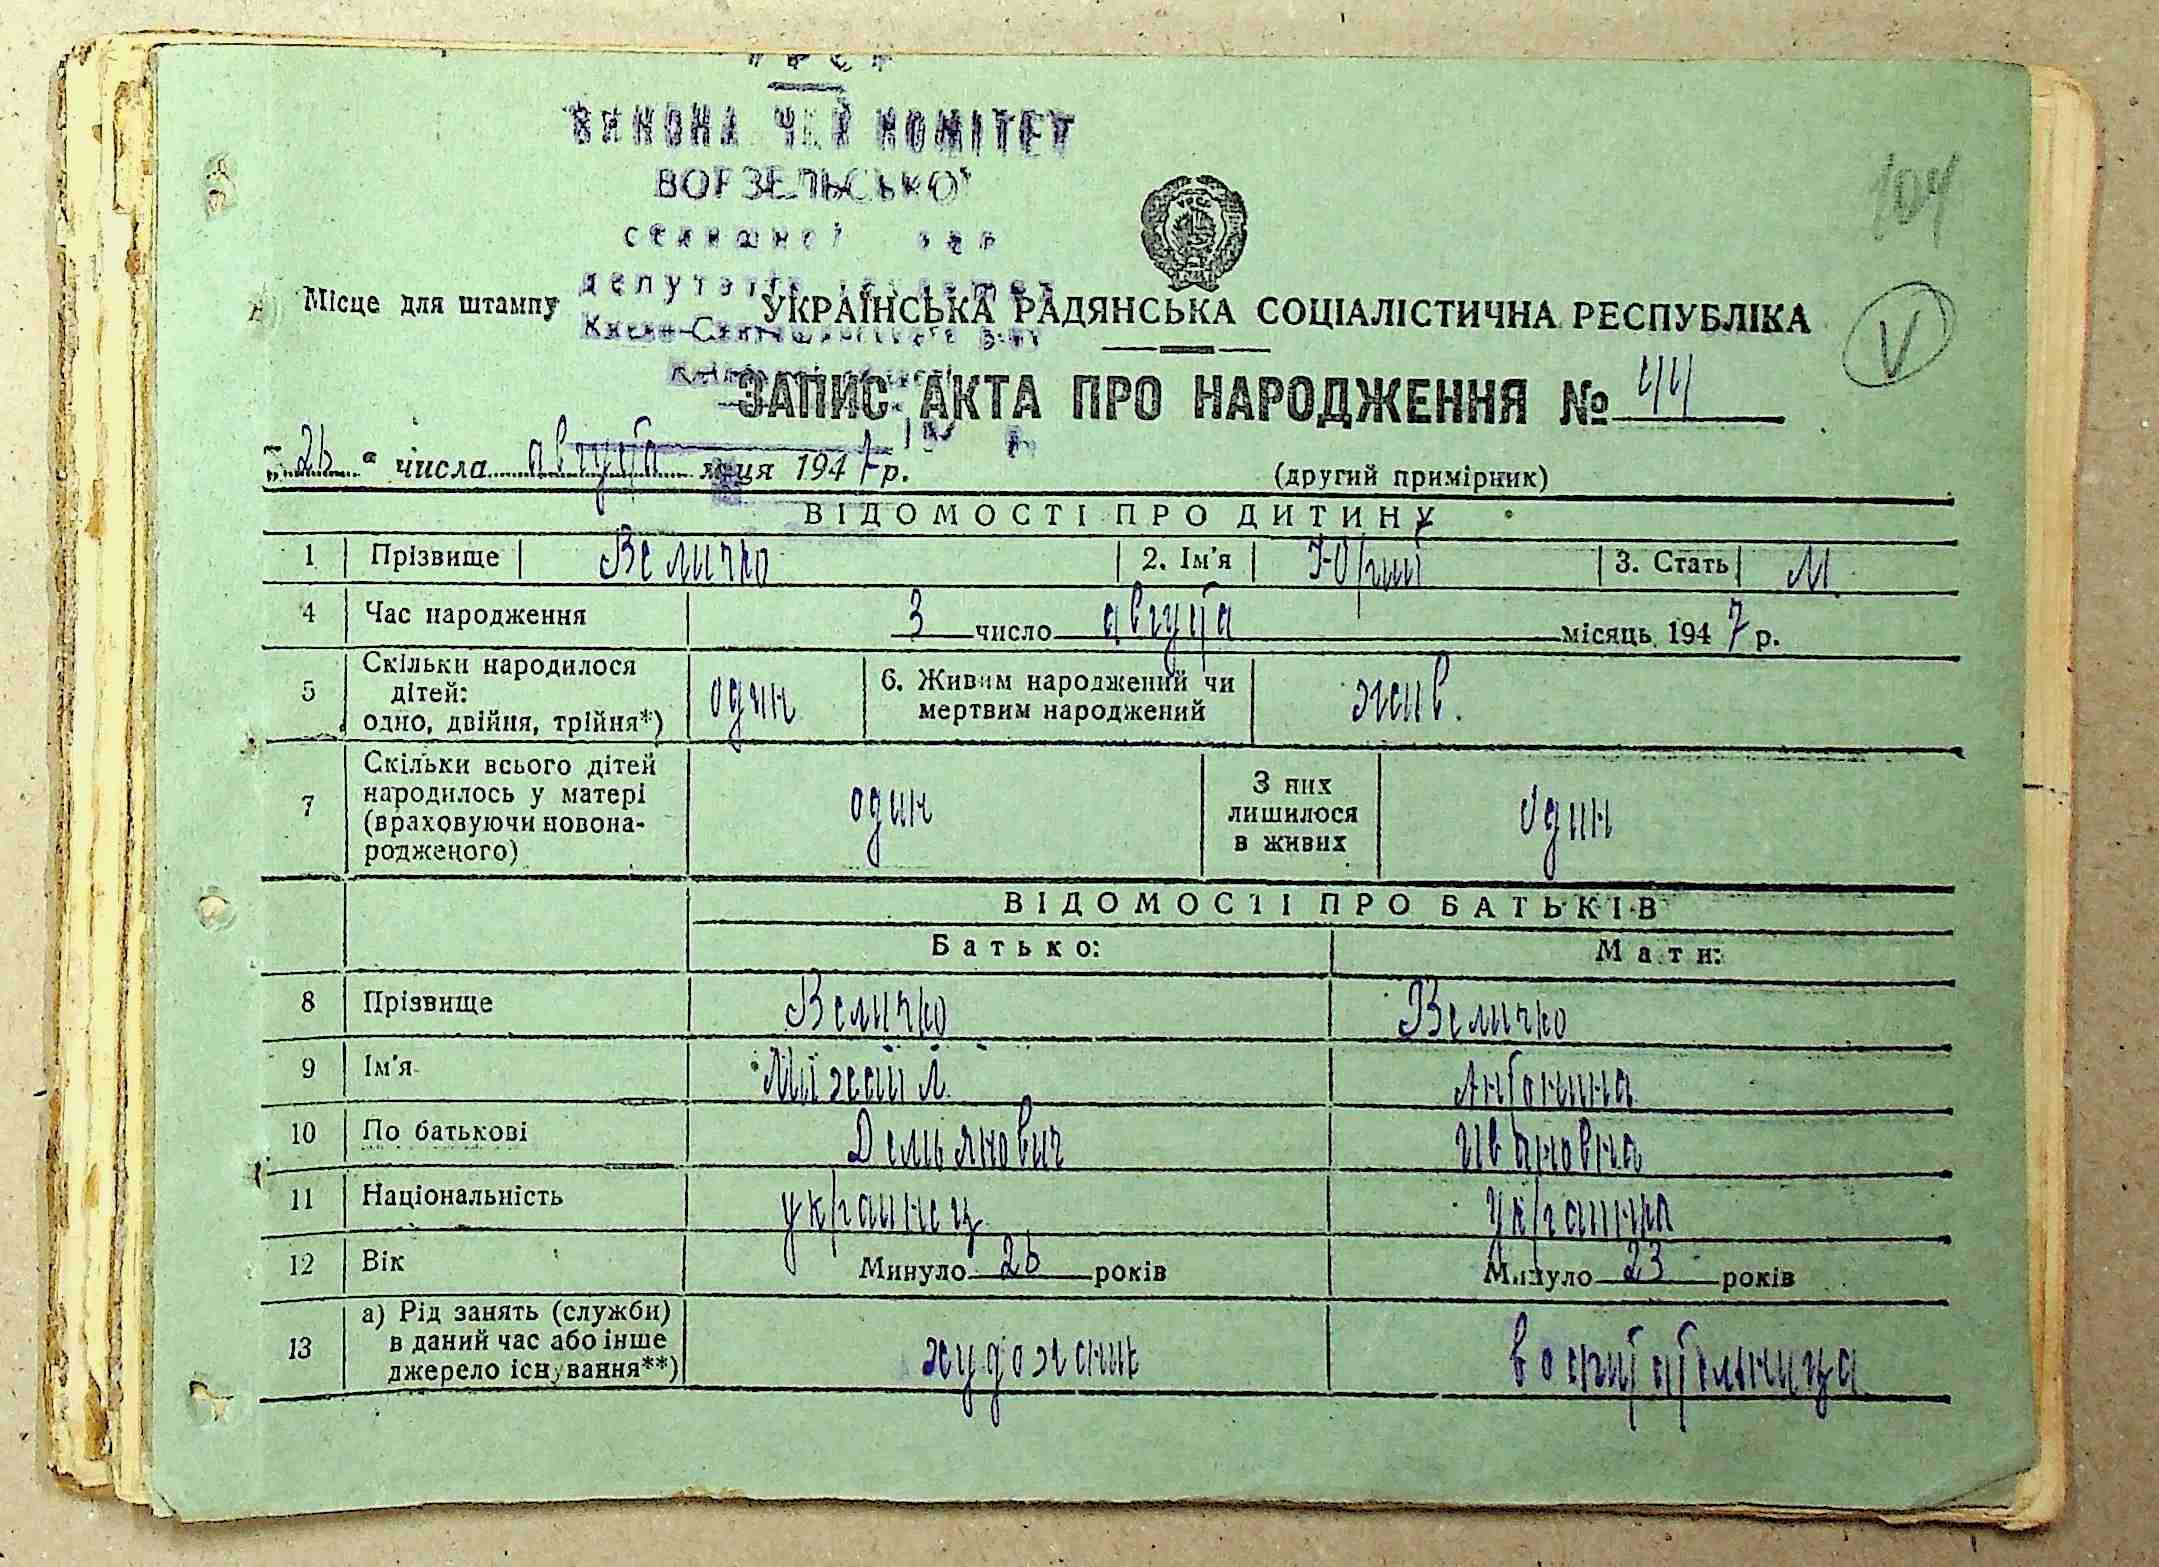 УРСР
ВИКОНАВЧИЙ КОМІТЕТ
ВОРЗЕЛЬСЬКОЇ
селищної Ради
депутатів трудящих
Києво-Святошинського р-ну
Київської області
104
Місце для штампу
УКРАЇНСЬКА РАДЯНСЬКА СОЦІАЛІСТИЧНА РЕСПУБЛІКА
V
ЗАПИС АКТА ПРО НАРОДЖЕННЯ № 44
„26“ числа августа м-ця 1947 р.
(другий примірник)
ВІДОМОСТІ ПРО ДИТИНУ
1 Прізвище Величко 2. Ім'я Юрий 3. Стать М.
4 Час народження 3 число августа місяць 1947 р.
5 Скільки народилося дітей: одно, двійня, трійня*) один 6. Живим народжений чи мертвим народжений жив.
7 Скільки всього дітей народилось у матері (враховуючи новонародженого) один З них лишилося в живих один
ВІДОМОСТІ ПРО БАТЬКІВ
Батько: Мати:
8 Прізвище Величко Величко
9 Ім'я Михаил Антонина
10 По батькові Демьянович Ивановна
11 Національність украинец украинка
12 Вік Минуло 26 років Минуло 23 років
13 а) Рід занять (служби) в даний час або інше джерело існування**) художник воспитательница